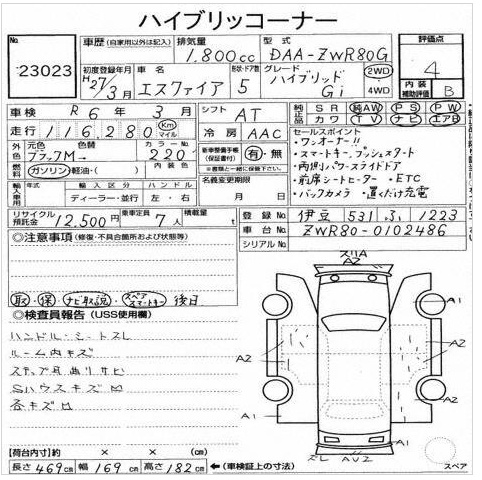 ハイブリッドコーナー
No. 23023
車歴 (自家用以外は記入) 排気量 1,800cc 型式 DAA-ZWR80G 評価点 4
初度登録年月 H27/3月 車名 エスクァイア 形状・ドア数 5 グレード ハイブリッド Gi 2WD ・4WD 内装補助評価 B
車検 R 6年 3月 シフト AT 純正品 SR 純AW PS PW
走行 116,280 Km マイル 冷房 AAC カワ TV ナビ エアB
外色 元色 ブラックM→ 色替 カラーNo. 220 新車整備手帳(保証書付) 有・無
※書類と一緒に保管して下さい。
燃料 ガソリン・軽油・( ) 名義変更期限 月 日
セールスポイント
・ワンオーナー!!
・スマートキー・プッシュスタート
・両側パワースライドドア
・前席シートヒーター・ETC
・バックカメラ・置くだけ充電
輸入車用 年式 輸入区分 ハンドル
年式 ディーラー・並行 左・右
リサイクル預託金 12,500円 乗車定員 7人 積載量 t
登録No. 伊豆 531 ふ 1223
車台No. ZWR80-0102486
シリアルNo.
◎注意事項 (修復・不具合箇所および状態等)
取 保 ナビ取説 スペアスマートキー 後日
◎検査員報告 (USS使用欄)
ハンドル・シートスレ
ルーム内キズ
ステップ耳ありサビ
Sハウスキズ凹
各キズ凹
スリA
A2
A1
A2
A2
A1
A1
スレ AU2
スペア
【荷台内寸】約 × × (cm)
長さ 469cm 幅 169cm 高さ 182cm ←(車検証上の寸法)